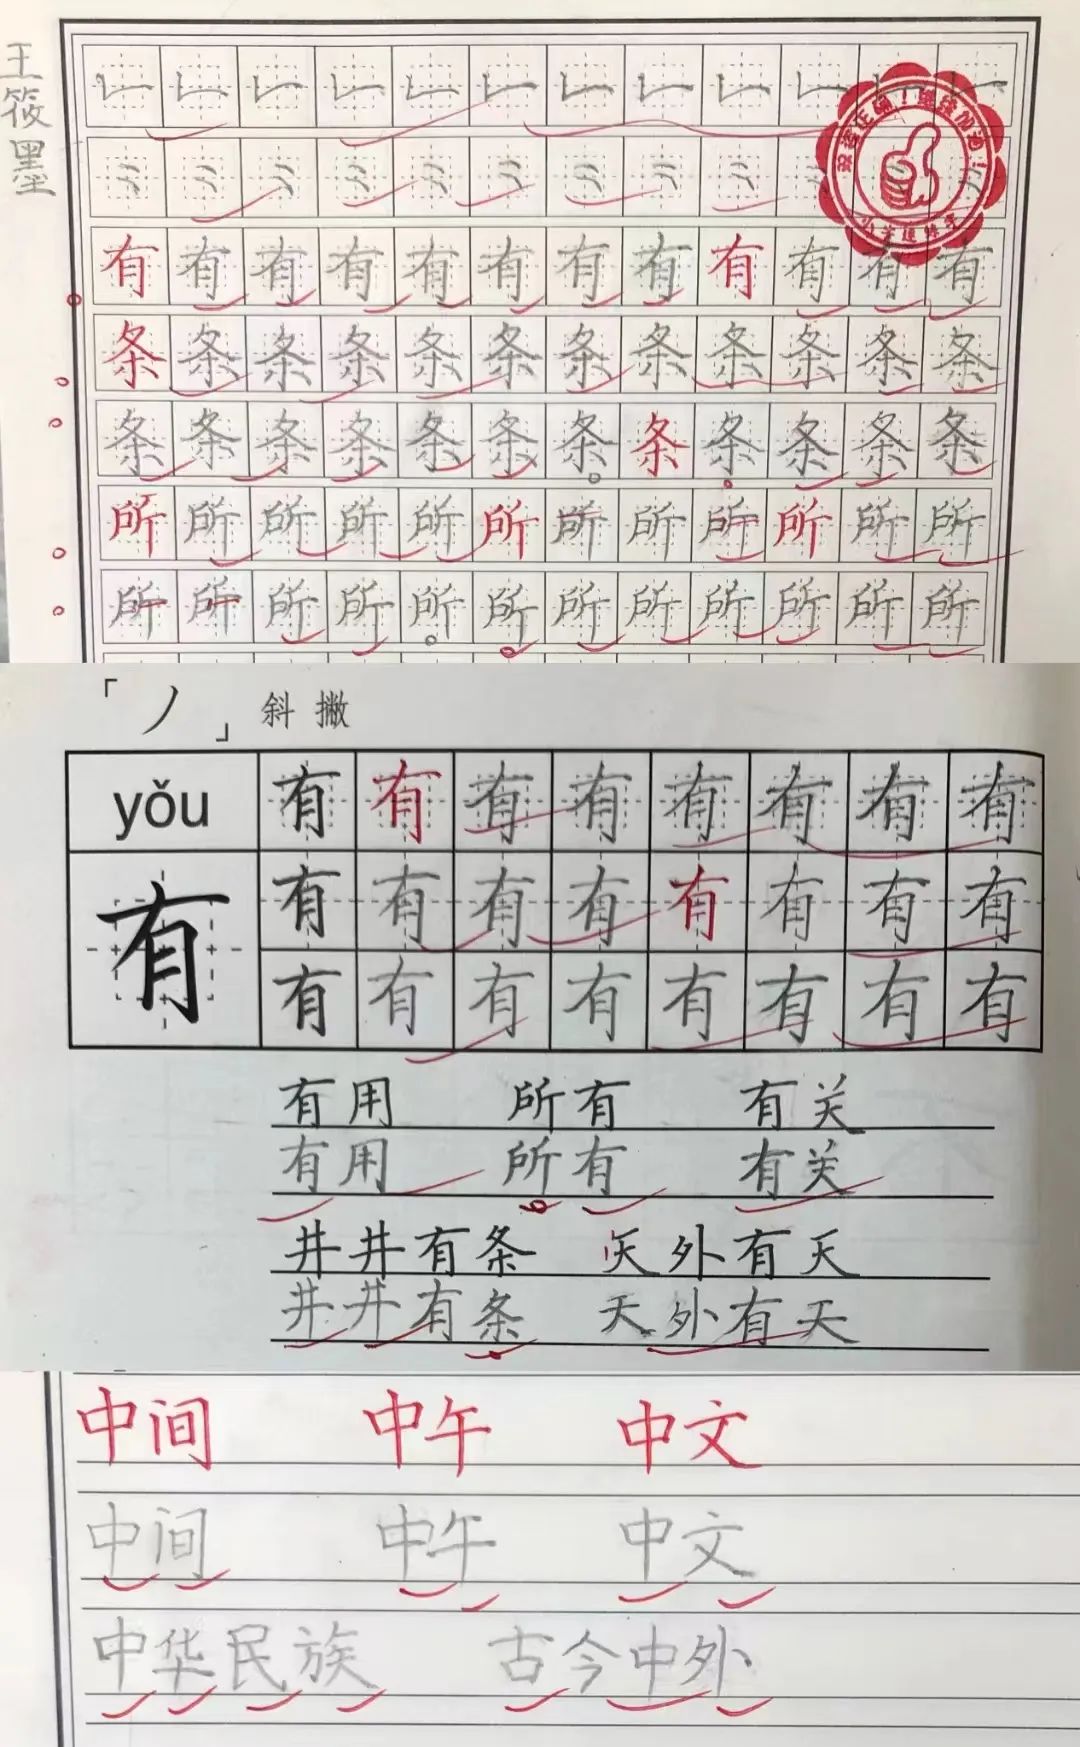 王筱墨
有有有有有有有有有有有有
条条条条条条条条条条条条
条条条条条条条条条条条条
所所所所所所所所所所所所
所所所所所所所所所所所所
「丿」斜撇
yǒu 有有有有有有有有
有 有有有有有有有有
有有有有有有有有
有用 所有 有关
有用 所有 有关
井井有条 天外有天
井井有条 天外有天
中间 中午 中文
中间 中午 中文
中华民族 古今中外